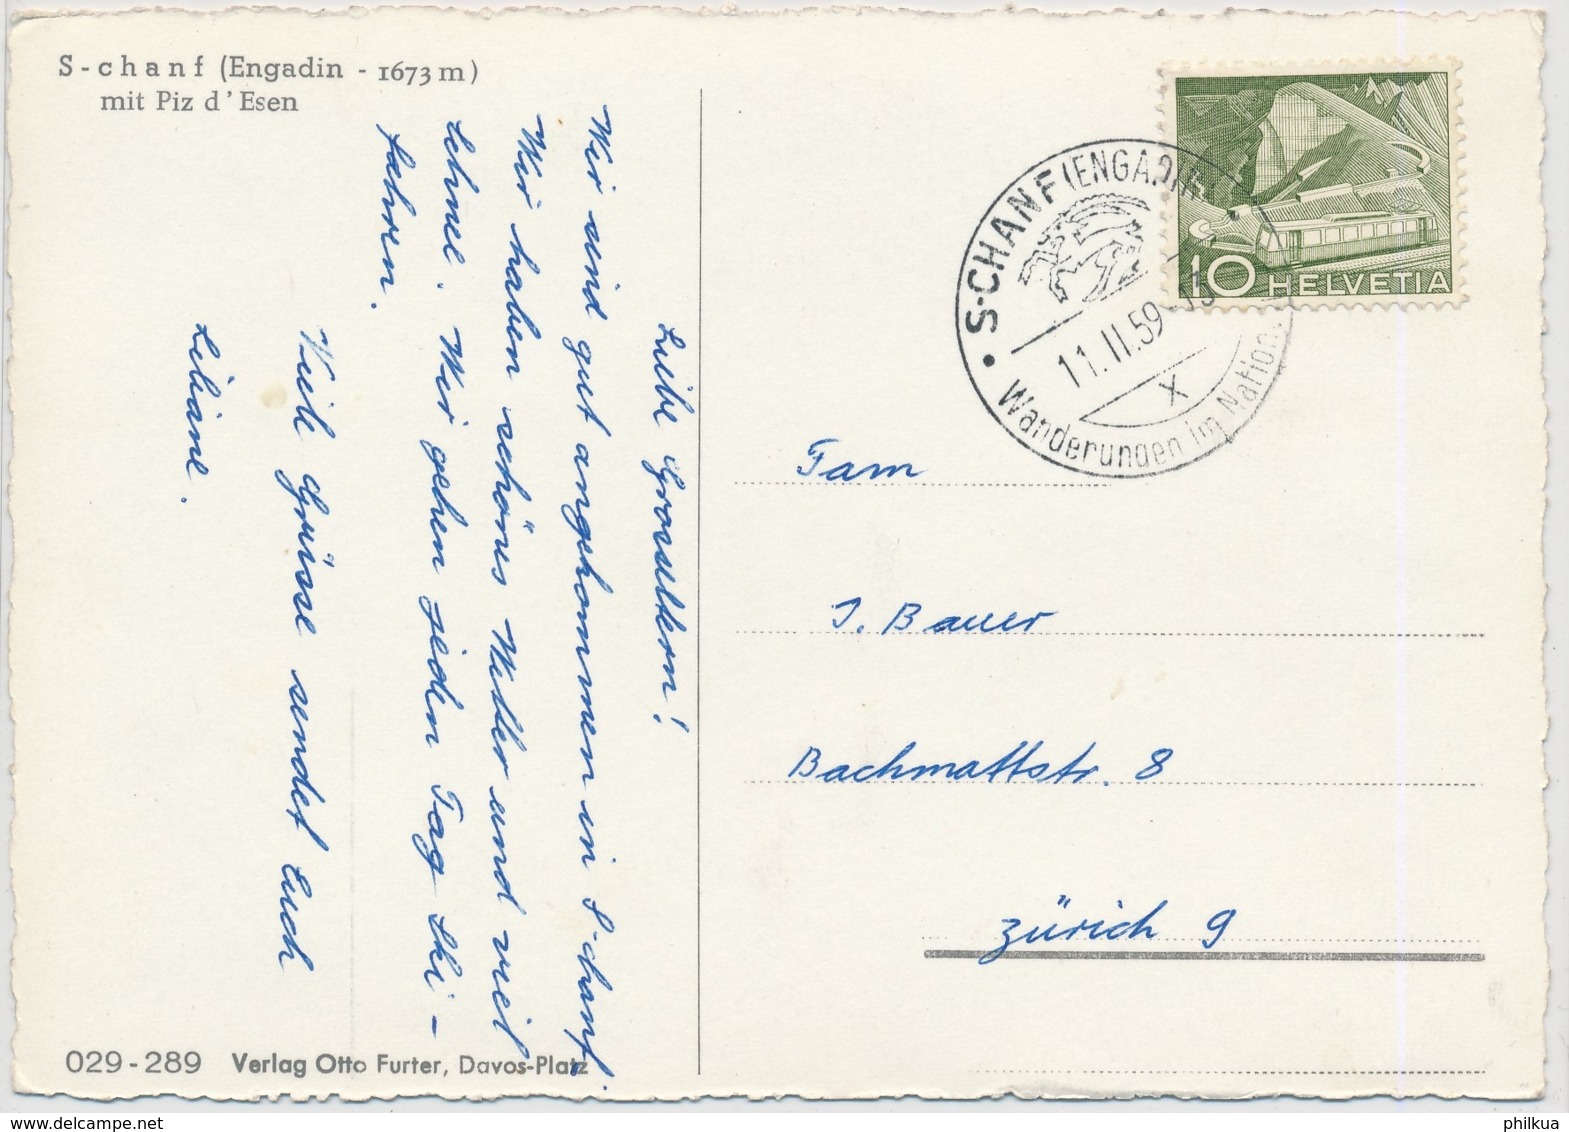 S-chanf (Engadin - 1673 m)
mit Piz d'Esen
Liebe Grosseltern!
Wir sind gut angekommen in S-chanf.
Wir haben schönes Wetter und viel
Schnee. Wir gehen jeden Tag Ski-
fahren.
Viele Grüsse sendet Euch
Liliane.
029-289 Verlag Otto Furter, Davos-Platz
HELVETIA
10
S-CHANF (ENGADIN)
11.II.59
X
Wanderungen im Nation
Fam
J. Bauer
Bachmattstr. 8
Zürich 9
philkua